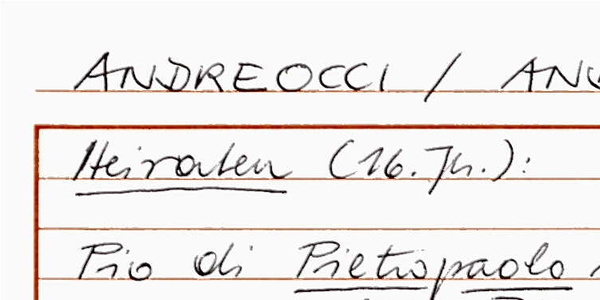 ANDREOCCI /
Heiraten (16. Jh.):
Pio di Pietropaolo